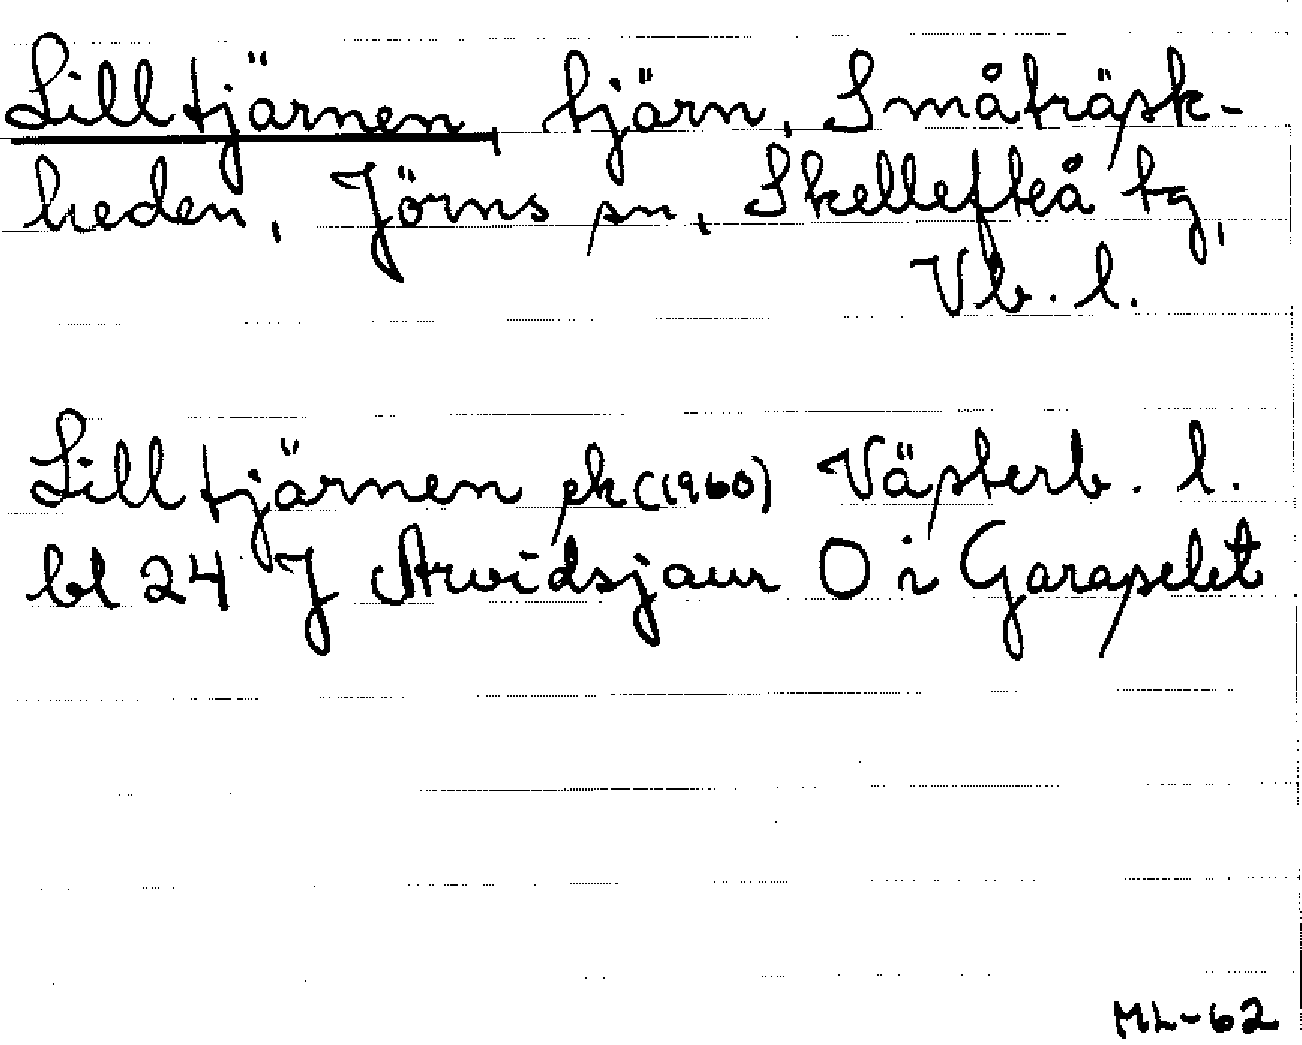 Lilltjärnen, tjärn, Småträsk-
heden, Jörns sn, Skellefteå tg,
Vb. l.
Lilltjärnen ek (1960) Västerb. l.
bl 24 J Arvidsjaur O i Garaselet
ML-62